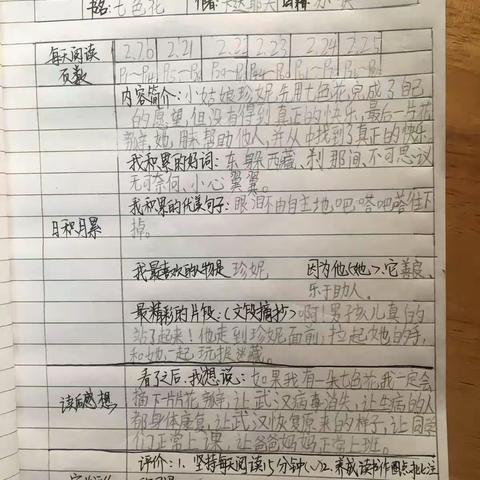 书名:七色花 作者:卡达耶夫 国籍:苏联
每天阅读页数 2.20 2.21 2.22 2.23 2.24 2.25
内容简介:小姑娘珍妮手用七色花完成了自己
的愿望,但没有得到真正的快乐,最后一片花
瓣,她用来帮助他人,并从中找到了真正的快乐。
我积累的好词:东躲西藏、刹那间、不可思议
无可奈何、小心翼翼。
我积累的优美句子:眼泪不由自主地吧嗒吧嗒往下
日积月累 掉。
我最喜欢的人物是珍妮 因为他(她)、它善良、
乐于助人。
最精彩的片段:(文段摘抄)啊!男孩儿真的
站了起来!他走到珍妮面前,拉起她的手,
和她一起玩捉迷藏。
看了之后,我想说:如果我有一朵七色花,我一定会
读后感想 摘下一片片花瓣,让武汉病毒消失,让生病的人
都身体康复,让武汉恢复原来的样子,让同学
们正常上课,让爸爸妈妈正常上班。
评价:1、坚持每天阅读15分钟( )2、养成读书作圈点批注